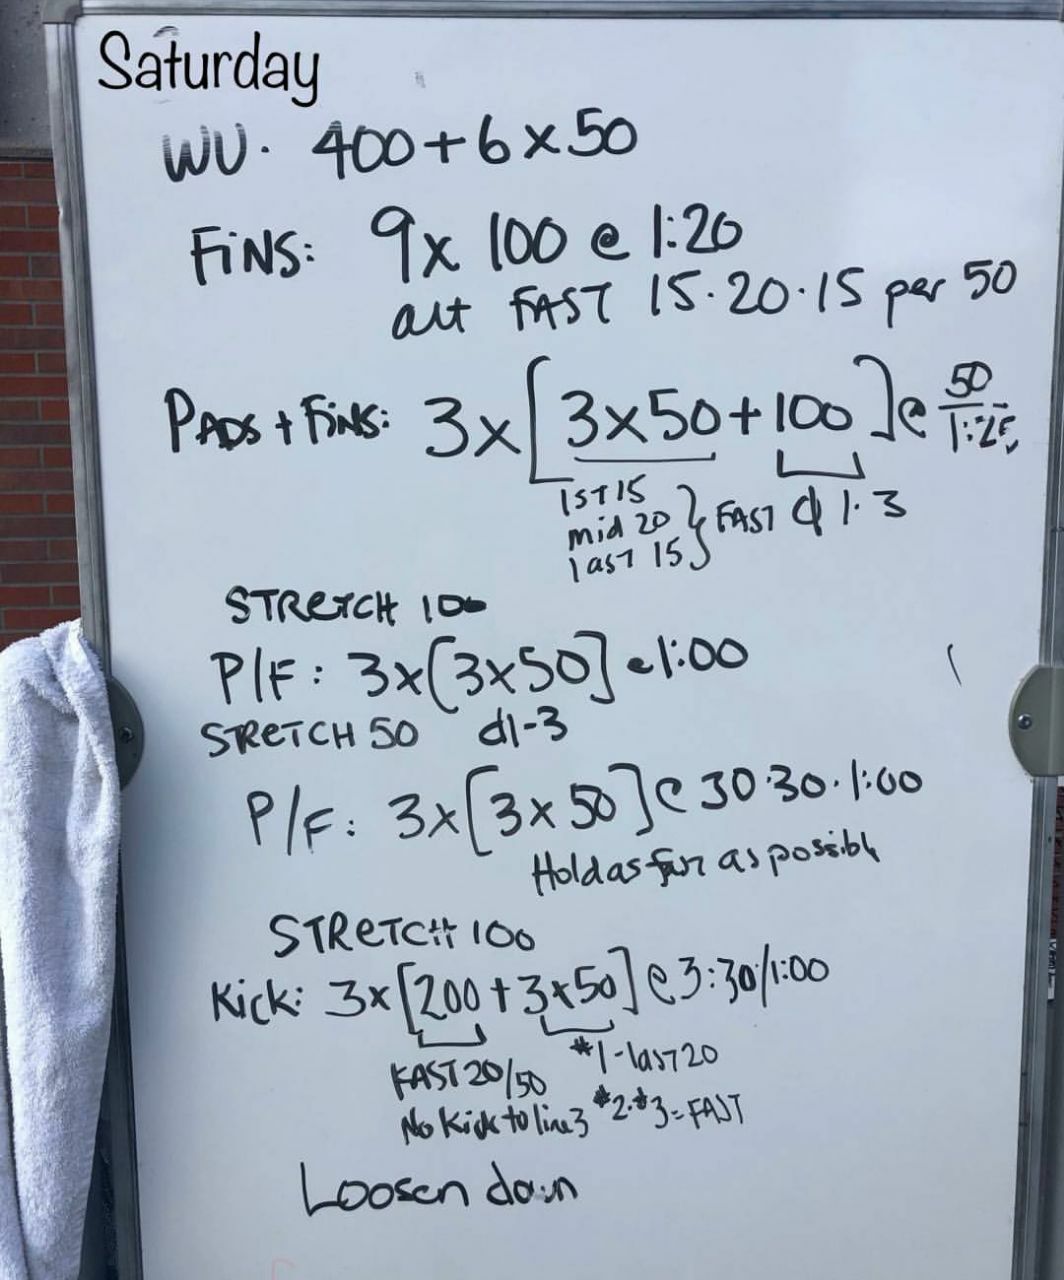 Saturday
WU. 400+6x50
FiNS: 9x 100 @ 1:20
alt FAST 15.20.15 per 50
PADS + FiNS: 3x[3x50+100]@ 50/1:25
1ST 15
mid 20 } FAST d 1.3
last 15
STRETCH 100
P/F: 3x[3x50]@1:00
STRETCH 50 d1-3
P/F: 3x[3x50]@ 30.30.1:00
Hold as far as possible
STRETCH 100
Kick: 3x[200+3x50]@3:30/1:00
FAST 20/50 #1-last 20
No Kick to line 3 #2.#3=FAST
Loosen down